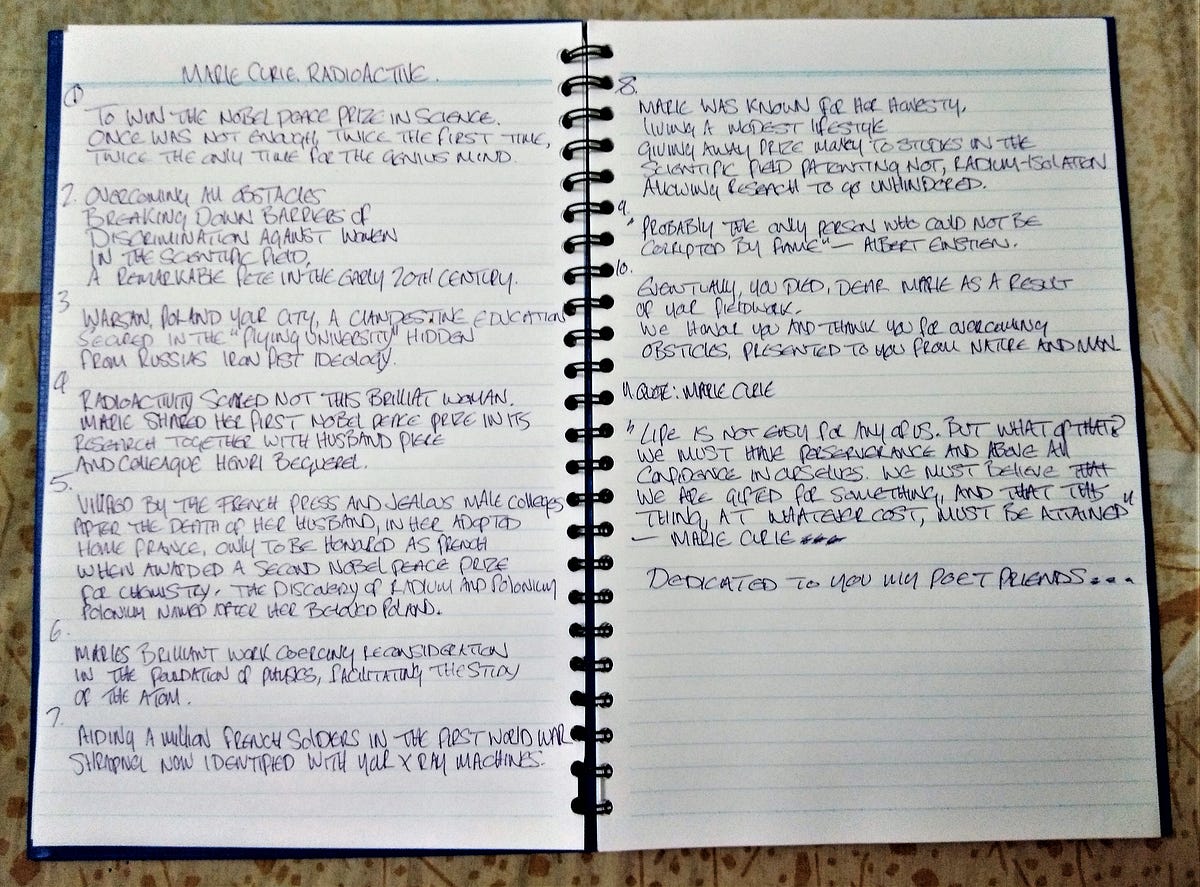 MARIE CURIE. RADIOACTIVE.
①
TO WIN THE NOBEL PEACE PRIZE IN SCIENCE.
ONCE WAS NOT ENOUGH, TWICE THE FIRST TIME,
TWICE THE ONLY TIME FOR THE GENIUS MIND.
2. OVERCOMING ALL OBSTACLES
BREAKING DOWN BARRIERS OF
DISCRIMINATION AGAINST WOMEN
IN THE SCIENTIFIC FIELD,
A REMARKABLE FETE IN THE EARLY 20TH CENTURY.
3
WARSAN, POLAND YOUR CITY, A CLANDESTINE EDUCATION
SECURED IN THE "FLYING UNIVERSITY" HIDDEN
FROM RUSSIAS IRON FIST IDEOLOGY.
4
RADIOACTIVITY SCARED NOT THIS BRILLIAT WOMAN.
MARIE SHARED HER FIRST NOBEL PEACE PRIZE IN ITS
RESEARCH TOGETHER WITH HUSBAND PIERE
AND COLLEAGUE HENRI BEQUEREL.
5.
VILIFIED BY THE FRENCH PRESS AND JEALOUS MALE COLLEGES
AFTER THE DEATH OF HER HUSBAND, IN HER ADOPTED
HOME FRANCE, ONLY TO BE HONOURED AS FRENCH
WHEN AWARDED A SECOND NOBEL PEACE PRIZE
FOR CHEMISTRY. THE DISCOVERY OF RADIUM AND POLONIUM
POLONIUM NAMED AFTER HER BELOVED POLAND.
6.
MARIES BRILLIANT WORK COERCING RECONSIDERATION
IN THE FOUNDATION OF PHYSICS, FACILITATING THE STUDY
OF THE ATOM.
7.
AIDING A MILLION FRENCH SOLDIERS IN THE FIRST WORLD WAR
SHRAPNEL NOW IDENTIFIED WITH YOUR X RAY MACHINES.
8.
MARIE WAS KNOWN FOR HER HONESTY,
LIVING A MODEST LIFESTYLE
GIVING AWAY PRIZE MONEY TO STUDIES IN THE
SCIENTIFIC FIELD PATENTING NOT, RADIUM-ISOLATION
ALLOWING RESEACH TO GO UNHINDERED.
9.
"PROBABLY THE ONLY PERSON WHO COULD NOT BE
CORRUPTED BY FAME" — ALBERT EINSTIEN.
10.
EVENTUALLY, YOU DIED, DEAR MARIE AS A RESULT
OF YOUR FIELDWORK.
WE HONOR YOU AND THANK YOU FOR OVERCOMING
OBSTICLES, PRESENTED TO YOU FROM NATURE AND MAN.
11. QUOTE: MARIE CURIE
"LIFE IS NOT EASY FOR ANY OF US. BUT WHAT OF THAT?
WE MUST HAVE PERSERVERANCE AND ABOVE ALL
CONFIDENCE IN OURSELVES. WE MUST BELIEVE THAT
WE ARE GIFTED FOR SOMETHING, AND THAT THIS
THING, AT WHATEVER COST, MUST BE ATTAINED"
— MARIE CURIE
DEDICATED TO YOU MY POET FRIENDS...